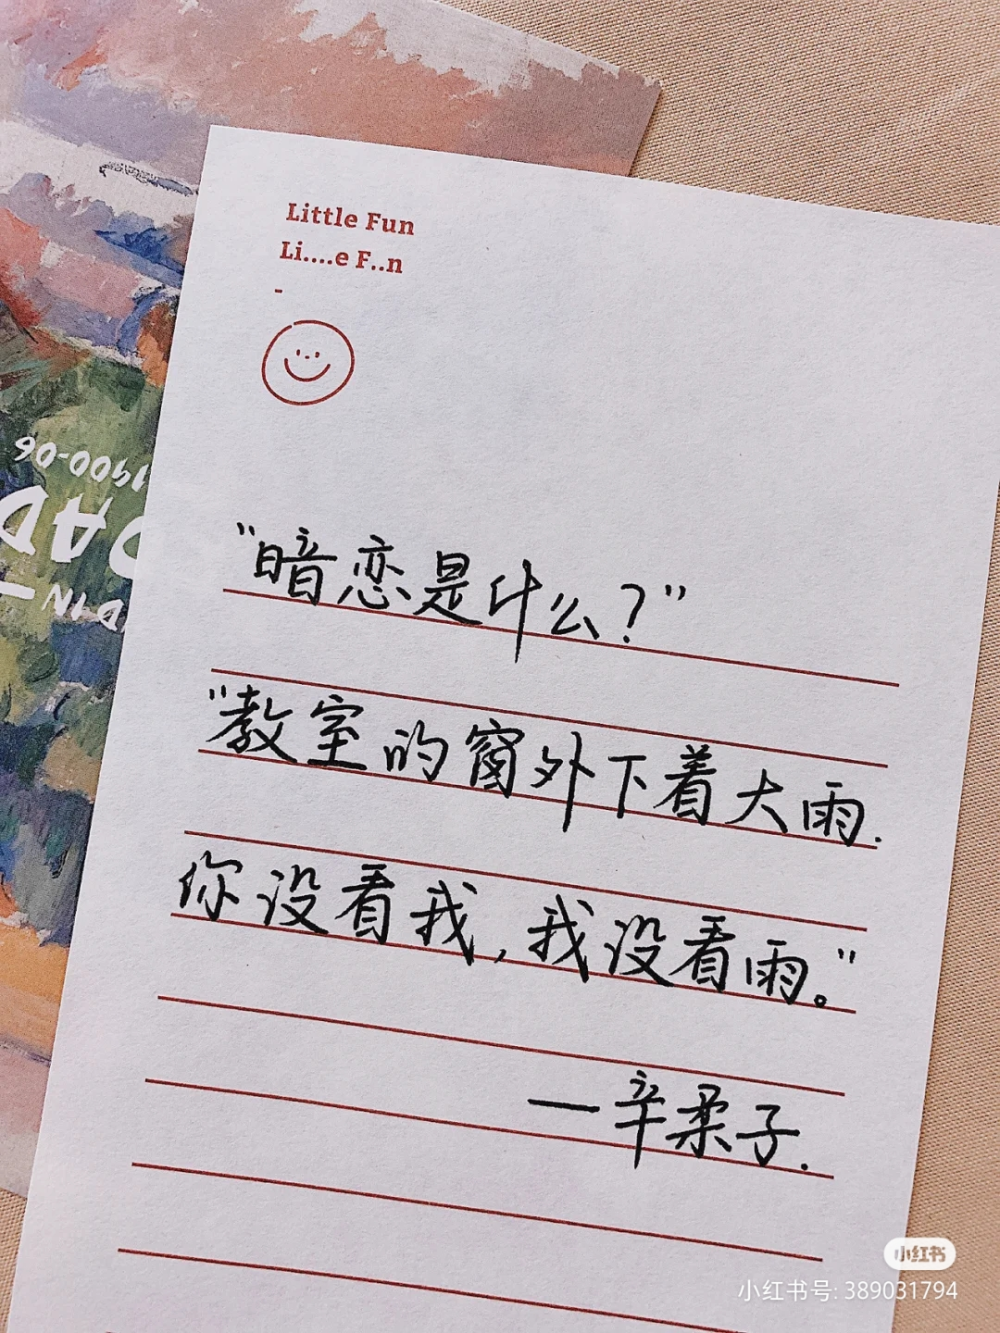 Little Fun
Li....e F..n
-
1900-06
"暗恋是什么?"
"教室的窗外下着大雨.
你没看我,我没看雨。"
—辛柔子.
小红书
小红书号: 389031794